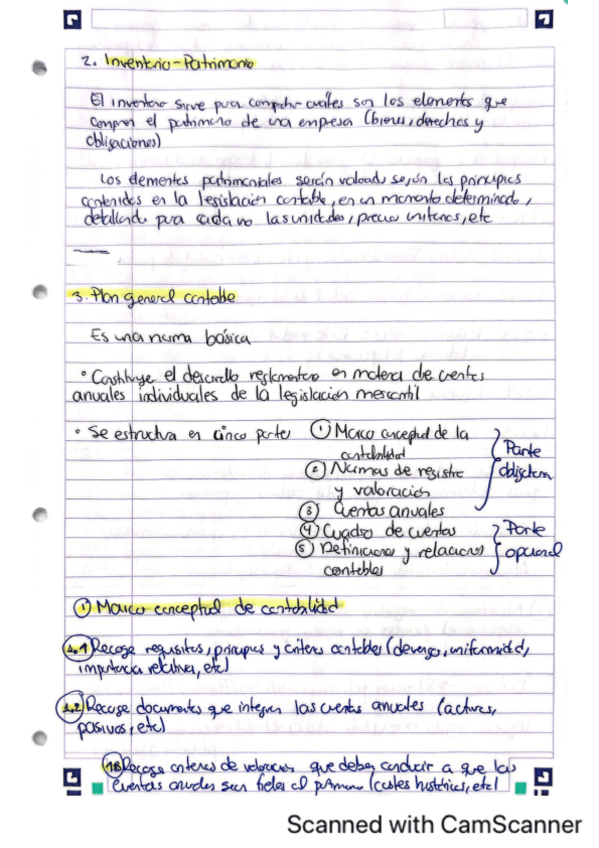 2. Inventario-Patrimonio
El inventario sirve para comprobar cuáles son los elementos que
componen el patrimonio de una empresa (bienes, derechos y
obligaciones)
Los elementos patrimoniales serán valorados según los principios
contenidos en la legislación contable, en un momento determinado,
detallando para cada uno las unidades, precios unitarios, etc
3. Plan general contable
Es una norma básica
• Constituye el desarrollo reglamentario en materia de cuentas
anuales individuales de la legislación mercantil
• Se estructura en cinco partes ① Marco conceptual de la
contabilidad
② Normas de registro
y valoración
③ Cuentas anuales
Parte
obligatoria
④ Cuadro de cuentas
⑤ Definiciones y relaciones
contables
Parte
opcional
① Marco conceptual de contabilidad
1.1 Recoge requisitos, principios y criterios contables (devengo, uniformidad,
importancia relativa, etc)
1.2 Recoge documentos que integran las cuentas anuales (activos,
pasivos, etc)
1.3 Recoge criterios de valoración que deben conducir a que las
cuentas anuales sean fieles al patrimonio (costes históricos, etc)
Scanned with CamScanner